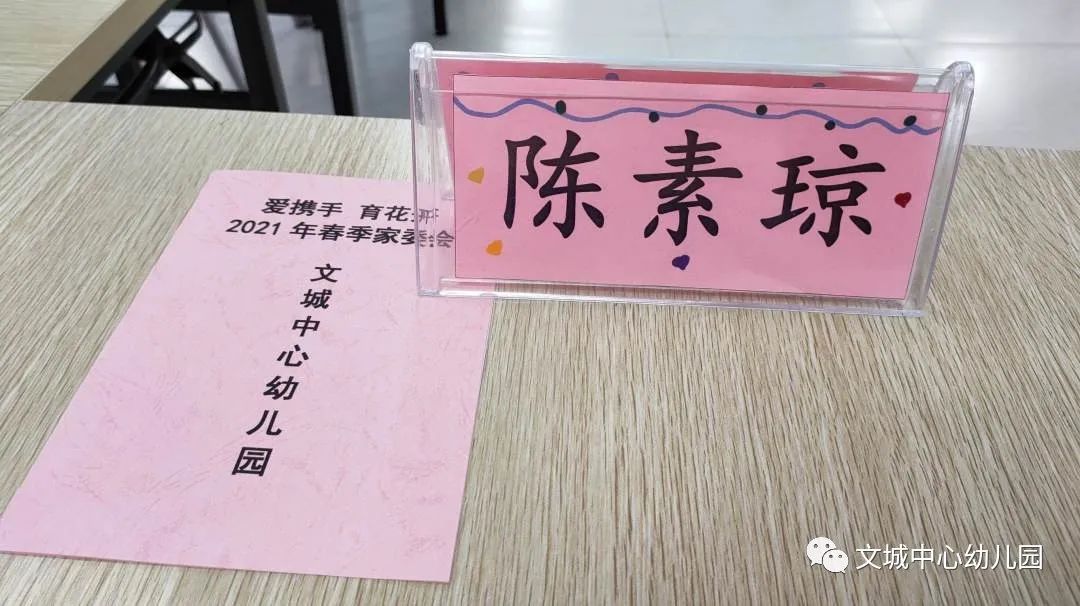 爱携手 育花开
2021 年春季家委会
文城中心幼儿园
陈素琼
文城中心幼儿园